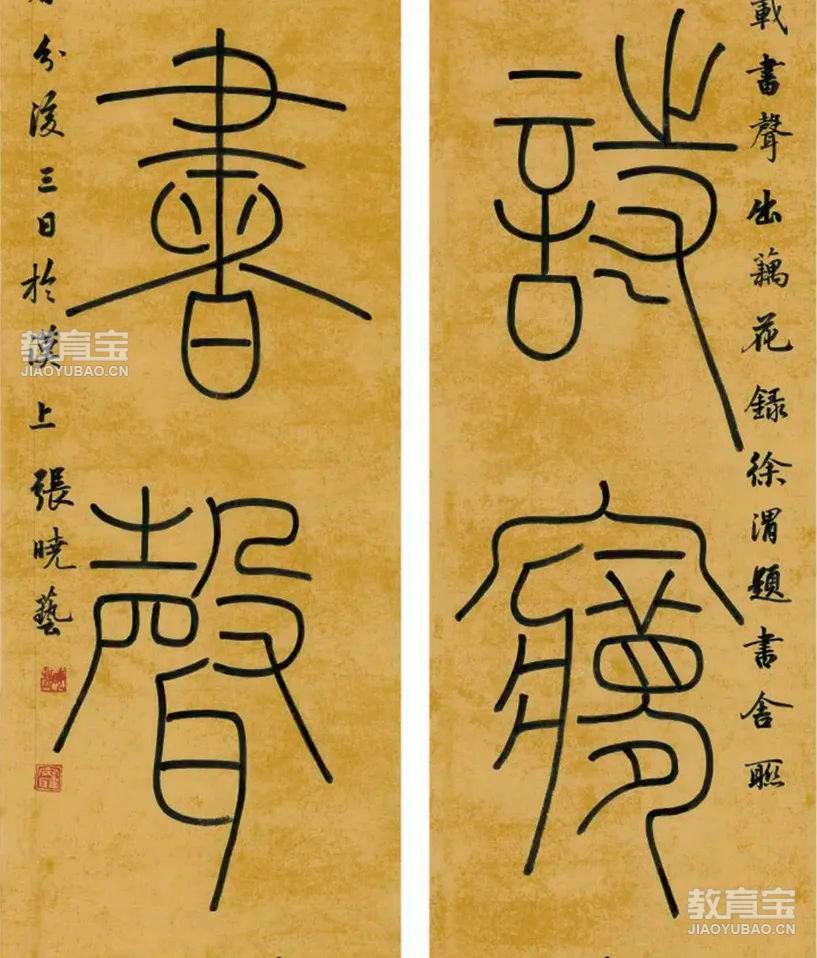 載書聲出藕花錄徐渭題書舍聯
詩夢
書聲
春分後三日於漢上張曉藝
教育宝
JIAOYUBAO.CN
教育宝
JIAOYUBAO.CN